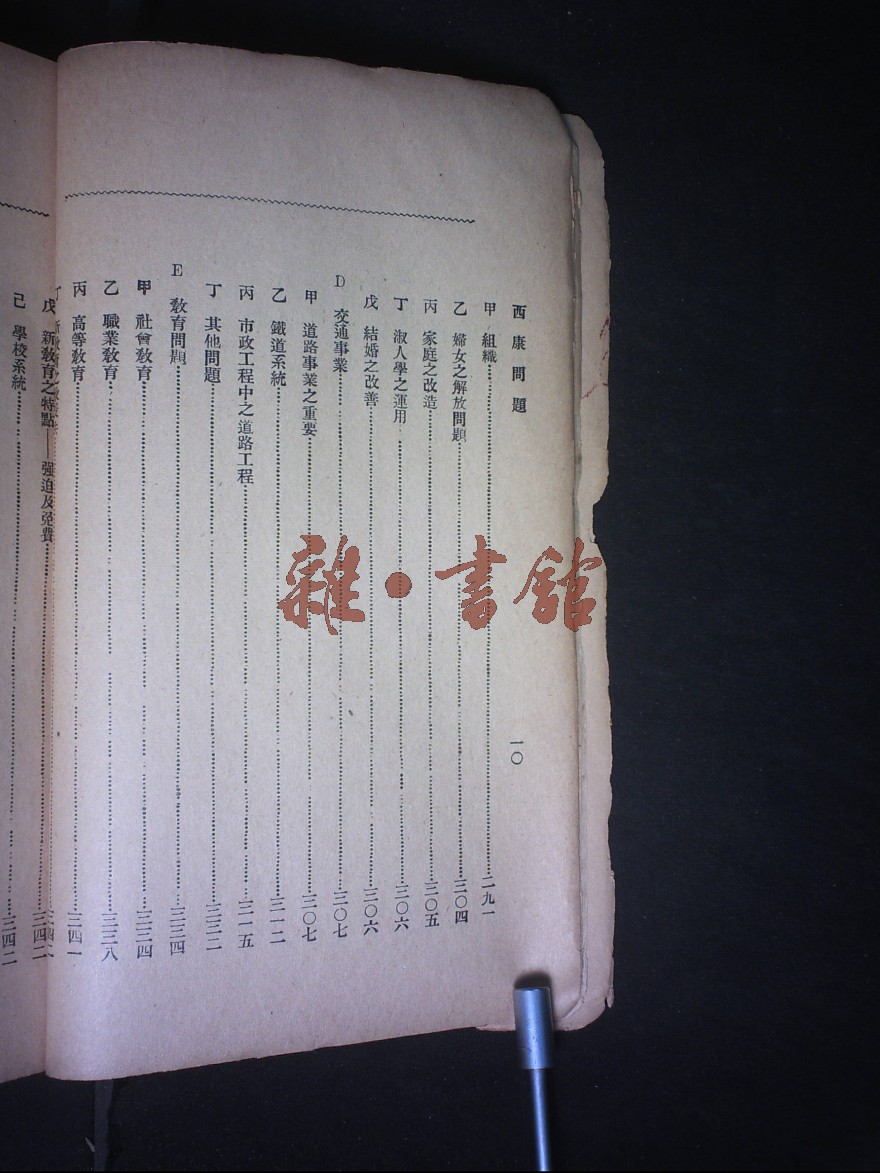 西康問題
一〇
甲　組織……二九一
乙　婦女之解放問題……三〇四
丙　家庭之改造……三〇五
丁　淑人學之運用……三〇六
戊　結婚之改善……三〇六
D　交通事業……三〇七
甲　道路事業之重要……三〇七
乙　鐵道系統……三一二
丙　市政工程中之道路工程……三一五
丁　其他問題……三三二
E　敎育問題……三三四
甲　社會敎育……三三四
乙　職業敎育……三三八
丙　高等敎育……三四一
丁
戊　新敎育之特點——强迫及免費……三四二
己　學校系統……三四二
雜·書館